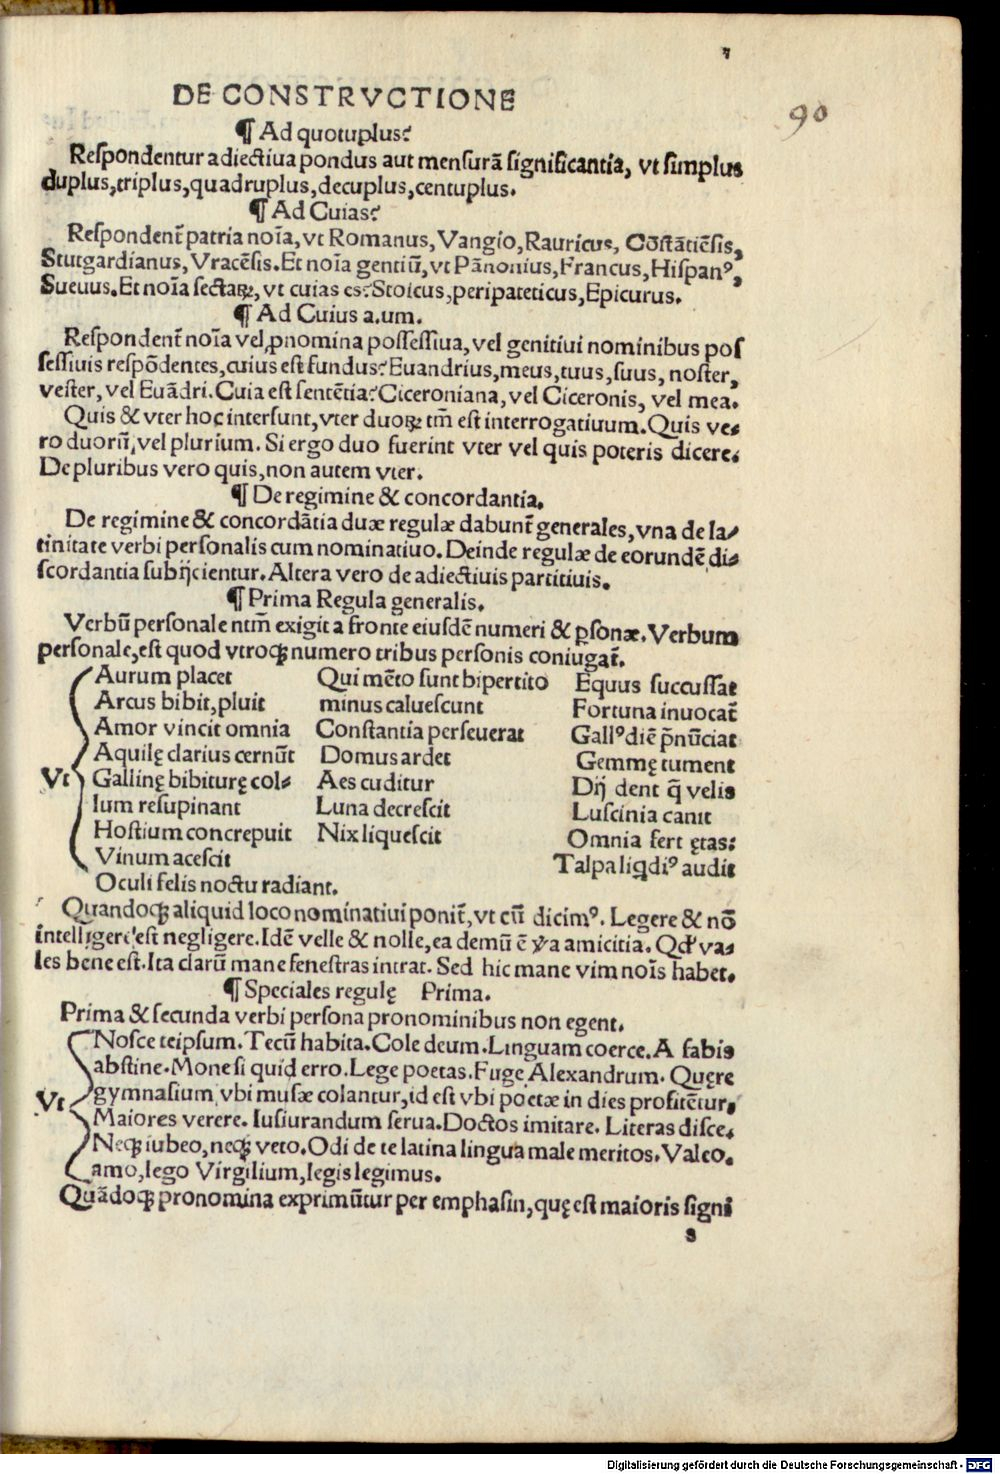 DE CONSTRVCTIONE
90
¶ Ad quotuplus?
Respondentur adiectiua pondus aut mensurã significantia, vt simplus
duplus,triplus,quadruplus,decuplus,centuplus.
¶ Ad Cuias?
Respondent᷑ patria noĩa, vt Romanus, Vangio, Rauricus, Cõstãtiẽsis,
Stutgardianus, Vracẽsis. Et noĩa gentiũ, vt Pãnonius, Francus, Hispanꝰ,
Sueuus. Et noĩa sectaꝝ, vt cuias es? Stoicus, peripateticus, Epicurus.
¶ Ad Cuius a.um.
Respondent᷑ noĩa vel ꝓnomina possessiua, vel genitiui nominibus pos
sessiuis respõdentes, cuius est fundus? Euandrius, meus, tuus, suus, noster,
vester, vel Euãdri. Cuia est sentẽtia? Ciceroniana, vel Ciceronis, vel mea.
Quis & vter hoc intersunt, vter duoꝝ tm̃ est interrogatiuum. Quis ve-
ro duorũ, vel plurium. Si ergo duo fuerint vter vel quis poteris dicere.
De pluribus vero quis, non autem vter.
¶ De regimine & concordantia.
De regimine & concordãtia duæ regulæ dabunt᷑ generales, vna de la/
tinitate verbi personalis cum nominatiuo. Deinde regulæ de eorundẽ di-
scordantia subijcientur. Altera vero de adiectiuis partitiuis.
¶ Prima Regula generalis.
Verbũ personale ntm̃ exigit a fronte eiusdẽ numeri & ꝑsonæ. Verbum
personale, est quod vtroqꝫ numero tribus personis coniugat᷑.
Vt
Aurum placet
Arcus bibit, pluit
Amor vincit omnia
Aquilę clarius cernũt
Gallinę bibiturę col-
lum resupinant
Hostium concrepuit
Vinum acescit
Oculi felis noctu radiant.
Qui mẽto sunt bipertito
minus caluescunt
Constantia perseuerat
Domus ardet
Aes cuditur
Luna decrescit
Nix liquescit
Equus succussat
Fortuna inuocat᷑
Gallꝰ diẽ p̃nũciat
Gemmę tument
Dij dent q̃ velis
Luscinia canit
Omnia fert ętas:
Talpa liq̃diꝰ audit
Quandoqꝫ aliquid loco nominatiui ponit᷑, vt cũ dicimꝰ. Legere & nõ
intelligere est negligere. Idẽ velle & nolle, ea demũ ẽ ꝟa amicitia. Qđ va-
les bene est. Ita clarũ mane fenestras intrat. Sed hic mane vim noĩs habet.
¶ Speciales regulę Prima.
Prima & secunda verbi persona pronominibus non egent.
Vt
Nosce teipsum. Tecũ habita. Cole deum. Linguam coerce. A fabis
abstine. Mone si quid erro. Lege poetas. Fuge Alexandrum. Quęre
gymnasium vbi musæ colantur, id est vbi poetæ in dies profitẽtur.
Maiores verere. Iusiurandum serua. Doctos imitare. Literas disce.
Neqꝫ iubeo, neqꝫ veto. Odi de te latina lingua male meritos. Valeo.
amo, lego Virgilium, legis legimus.
Quãdoqꝫ pronomina exprimũtur per emphasin, quę est maioris signi
s
Digitalisierung gefördert durch die Deutsche Forschungsgemeinschaft - DFG